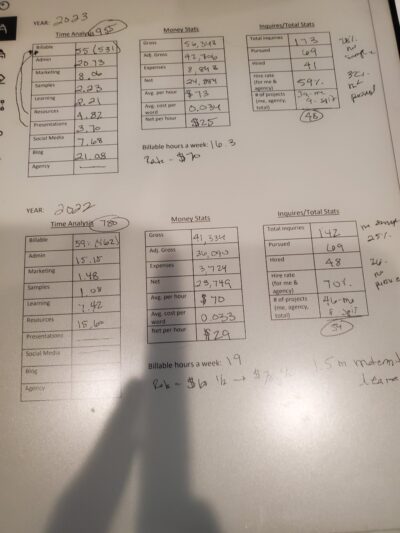 YEAR: 2023
Time Analysis 955
Billable 55 (531)
Admin 20.73
Marketing 8.06
Samples 2.23
Learning 2.21
Resources 4.82
Presentations 3.70
Social Media 7.68
Blog 21.08
Agency
Money Stats
Gross 56,343
Adj. Gross 42,806
Expenses 8,848
Net
Avg. per hour $73
Avg. cost per word 0.034
Net per hour $25
Billable hours a week: 16.3
Rate - $70
Inquires/Total Stats
Total Inquiries 173
Pursued 69
Hired 41
Hire rate (for me & agency) 59%
# of projects (me, agency, total)
48
no
32%
not
pursued
YEAR: 2022
Time Analysis 780
Billable 59% (462)
Admin 15.15
Marketing 1.48
Samples 1.08
Learning 7.42
Resources 15.60
Presentations
Social Media
Blog
Agency
Money Stats
Gross 41,334
Adj. Gross
Expenses 3,729
Net
Avg. per hour $70
Avg. cost per word 0.033
Net per hour $29
Billable hours a week: 19
1.5 m maternity
leave
Inquires/Total Stats
Total Inquiries 142
Pursued 69
Hired 48
Hire rate (for me & agency) 70%
# of projects (me, agency, total) 46-me
8 split
54
no
25%
no